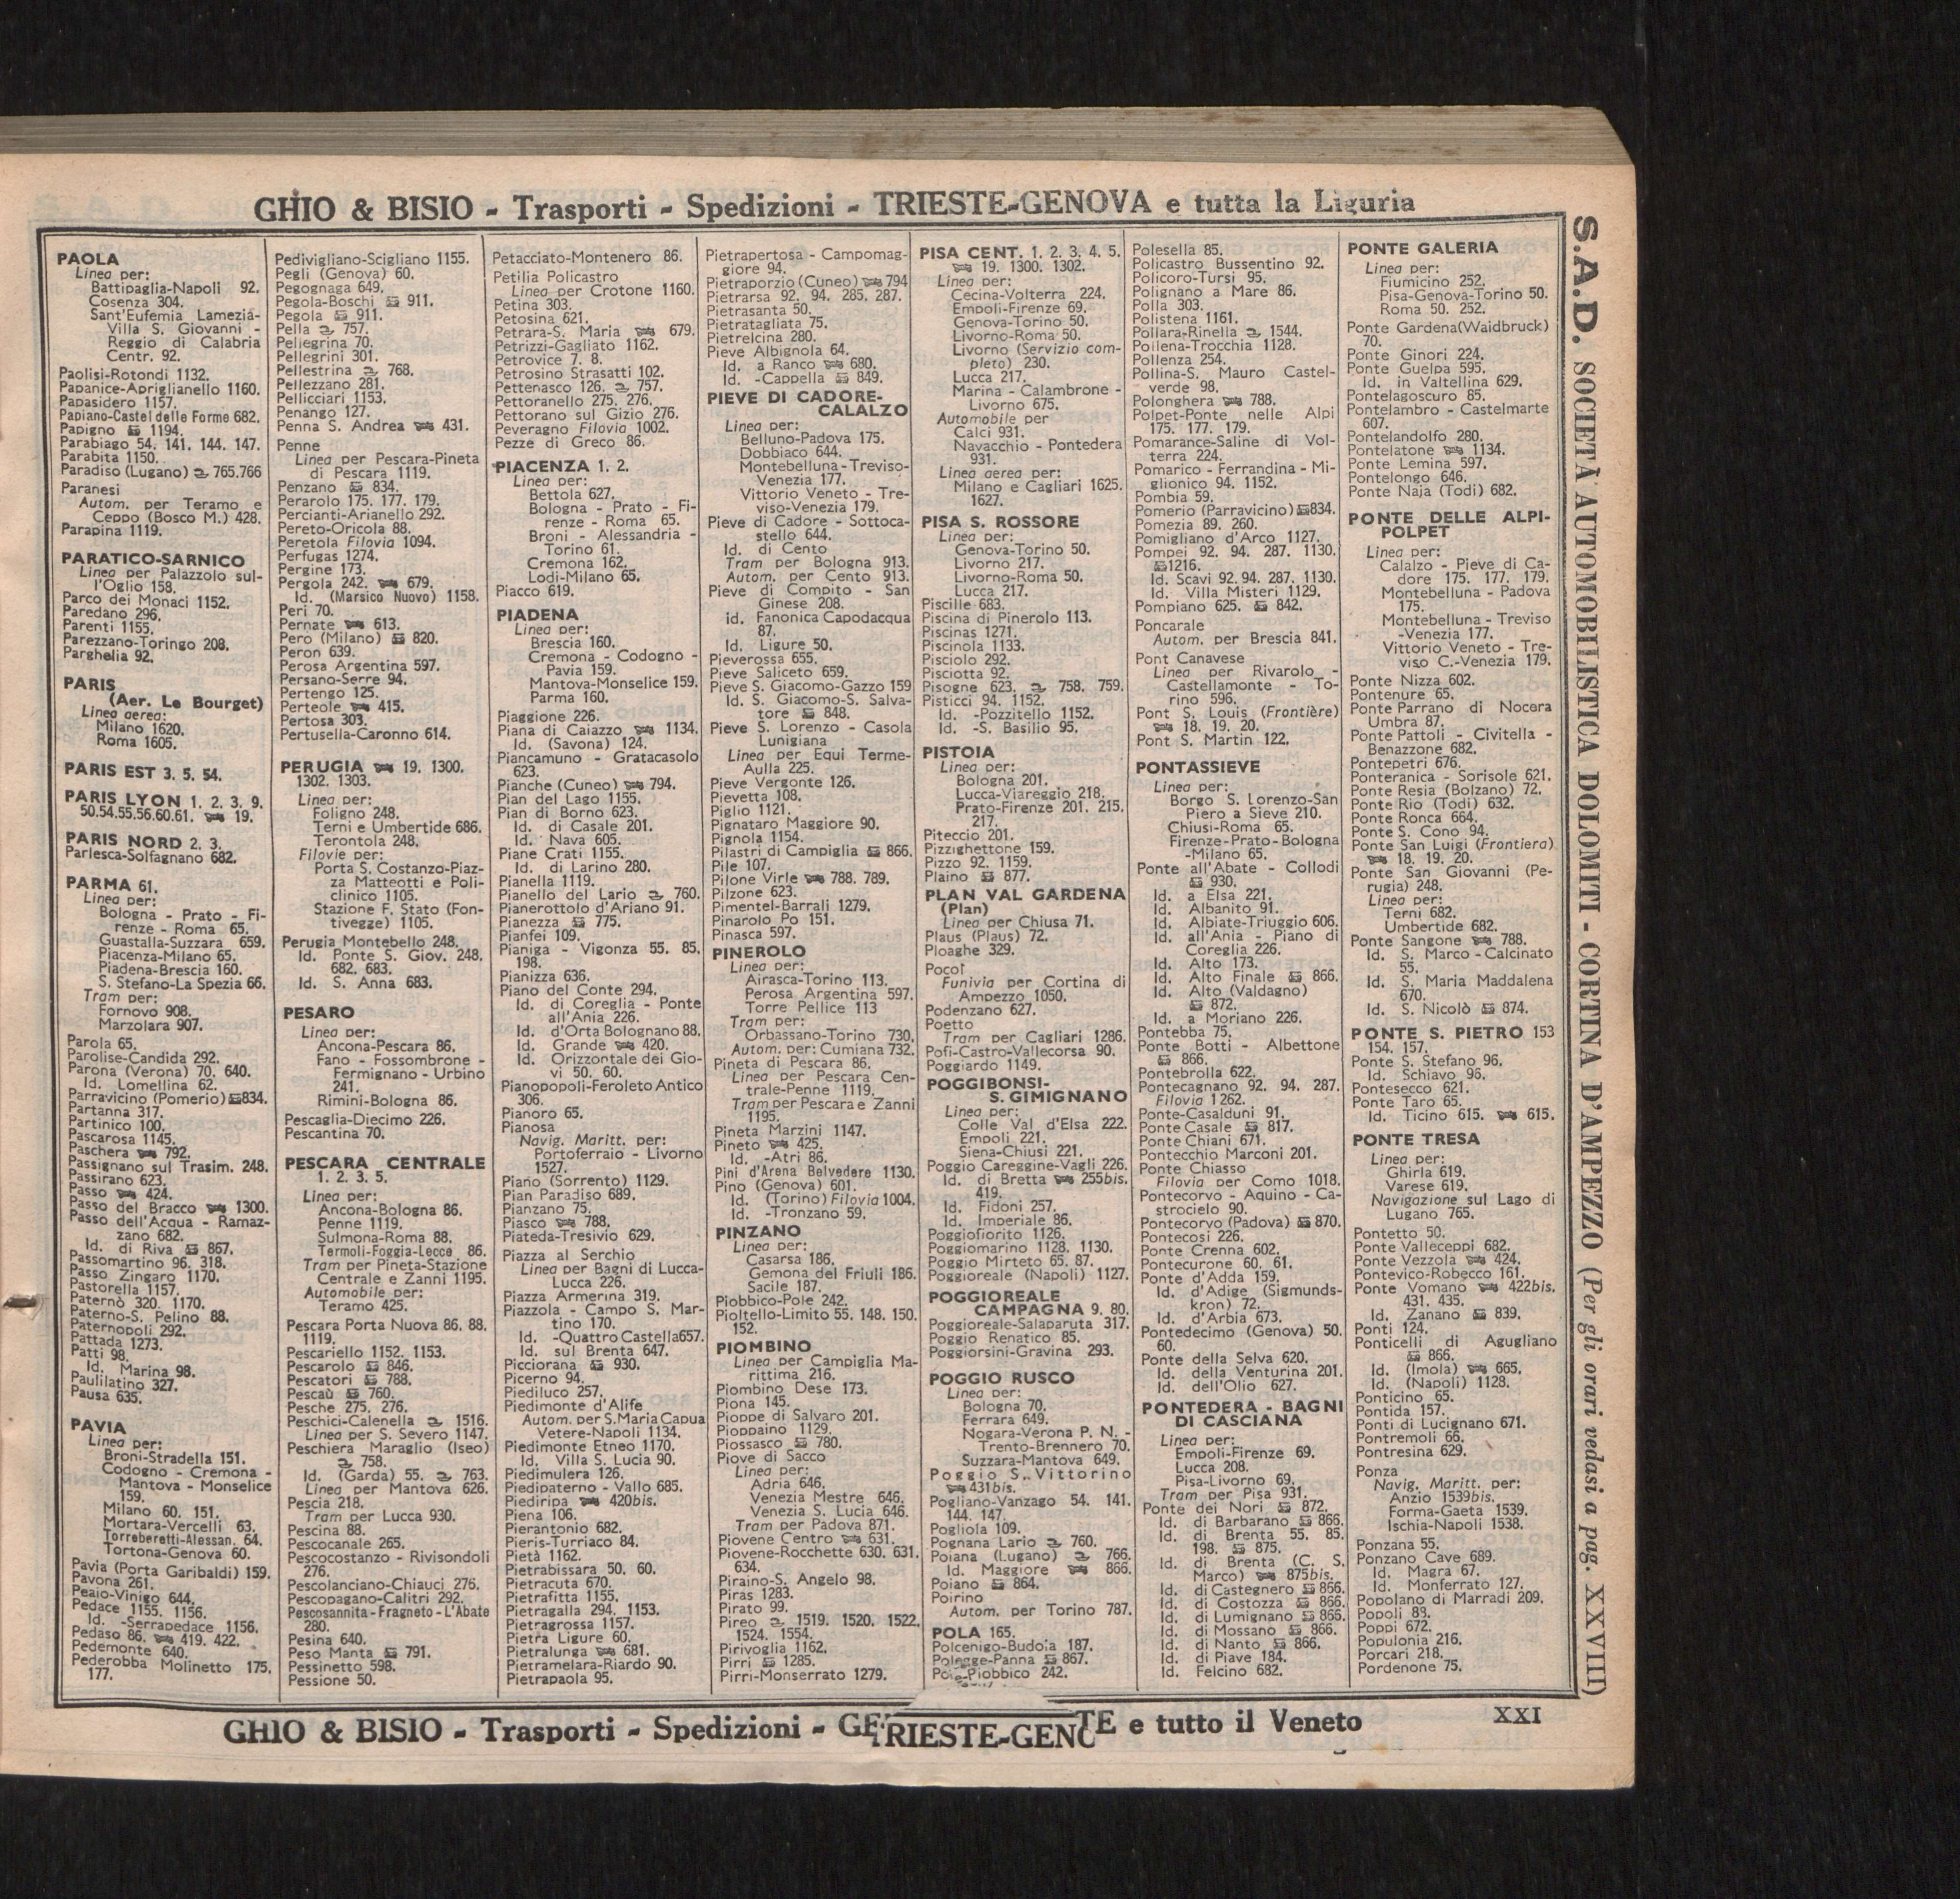 GHIO & BISIO - Trasporti - Spedizioni - TRIESTE-GENOVA e tutta la Liguria
PAOLA
Linea per:
Battipaglia-Napoli 92.
Cosenza 304.
Sant'Eufemia Lamezia-
Villa S. Giovanni -
Reggio di Calabria
Centr. 92.
Paolisi-Rotondi 1132.
Papanice-Apriglianello 1160.
Papasidero 1157.
Papiano-Castel delle Forme 682.
Papigno 1194.
Parabiago 54. 141. 144. 147.
Parabita 1150.
Paradiso (Lugano) 765.766
Paranesi
Autom. per Teramo e
Ceppo (Bosco M.) 428.
Parapina 1119.
PARATICO-SARNICO
Linea per Palazzolo sul-
l'Oglio 158.
Parco dei Monaci 1152.
Paredano 296.
Parenti 1155.
Parezzano-Toringo 208.
Parghelia 92.
PARIS
(Aer. Le Bourget)
Linea aerea:
Milano 1620.
Roma 1605.
PARIS EST 3. 5. 54.
PARIS LYON 1. 2. 3. 9.
50.54.55.56.60.61. 19.
PARIS NORD 2. 3.
Parlesca-Solfagnano 682.
PARMA 61.
Linea per:
Bologna - Prato - Fi-
renze - Roma 65.
Guastalla-Suzzara 659.
Piacenza-Milano 65.
Piadena-Brescia 160.
S. Stefano-La Spezia 66.
Tram per:
Fornovo 908.
Marzolara 907.
Parola 65.
Parolise-Candida 292.
Parona (Verona) 70. 640.
Id. Lomellina 62.
Parravicino (Pomerio) 834.
Partanna 317.
Partinico 100.
Pascarosa 1145.
Paschera 792.
Passignano sul Trasim. 248.
Passirano 623.
Passo 424.
Passo del Bracco 1300.
Passo dell'Acqua - Ramaz-
zano 682.
Id. di Riva 867.
Passomartino 96. 318.
Passo Zingaro 1170.
Pastorella 1157.
Paternò 320. 1170.
Paterno-S. Pelino 88.
Paternopoli 292.
Pattada 1273.
Patti 98.
Id. Marina 98.
Paulilatino 327.
Pausa 635.
PAVIA
Linea per:
Broni-Stradella 151.
Codogno - Cremona -
Mantova - Monselice
159.
Milano 60. 151.
Mortara-Vercelli 63.
Torreberetti-Alessan. 64.
Tortona-Genova 60.
Pavia (Porta Garibaldi) 159.
Pavona 261.
Peaio-Vinigo 644.
Pedace 1155. 1156.
Id. -Serrapedace 1156.
Pedaso 86. 419. 422.
Pedemonte 640.
Pederobba Molinetto 175.
177.
Pedivigliano-Scigliano 1155.
Pegli (Genova) 60.
Pegognaga 649.
Pegola-Boschi 911.
Pegola 911.
Pella 757.
Pellegrina 70.
Pellegrini 301.
Pellestrina 768.
Pellezzano 281.
Pellicciari 1153.
Penango 127.
Penna S. Andrea 431.
Penne
Linea per Pescara-Pineta
di Pescara 1119.
Penzano 834.
Perarolo 175. 177. 179.
Percianti-Arianello 292.
Pereto-Oricola 88.
Peretola Filovia 1094.
Perfugas 1274.
Pergine 173.
Pergola 242. 679.
Id. (Marsico Nuovo) 1158.
Peri 70.
Pernate 613.
Pero (Milano) 820.
Peron 639.
Perosa Argentina 597.
Persano-Serre 94.
Pertengo 125.
Perteole 415.
Pertosa 303.
Pertusella-Caronno 614.
PERUGIA 19. 1300.
1302. 1303.
Linea per:
Foligno 248.
Terni e Umbertide 686.
Terontola 248.
Filovie per:
Porta S. Costanzo-Piaz-
za Matteotti e Poli-
clinico 1105.
Stazione F. Stato (Fon-
tivegge) 1105.
Perugia Montebello 248.
Id. Ponte S. Giov. 248.
682. 683.
Id. S. Anna 683.
PESARO
Linea per:
Ancona-Pescara 86.
Fano - Fossombrone -
Fermignano - Urbino
241.
Rimini-Bologna 86.
Pescaglia-Diecimo 226.
Pescantina 70.
PESCARA CENTRALE
1. 2. 3. 5.
Linea per:
Ancona-Bologna 86.
Penne 1119.
Sulmona-Roma 88.
Termoli-Foggia-Lecce 86.
Tram per Pineta-Stazione
Centrale e Zanni 1195.
Automobile per:
Teramo 425.
Pescara Porta Nuova 86. 88.
1119.
Pescariello 1152. 1153.
Pescarolo 846.
Pescatori 788.
Pescaù 760.
Pesche 275. 276.
Peschici-Calenella 1516.
Linea per S. Severo 1147.
Peschiera Maraglio (Iseo)
758.
Id. (Garda) 55. 763.
Linea per Mantova 626.
Pescia 218.
Tram per Lucca 930.
Pescina 88.
Pescocanale 265.
Pescocostanzo - Rivisondoli
276.
Pescolanciano-Chiauci 276.
Pescopagano-Calitri 292.
Pescosannita-Fragneto-L'Abate
280.
Pesina 640.
Peso Manta 791.
Pessinetto 598.
Pessione 50.
Petacciato-Montenero 86.
Petilia Policastro
Linea per Crotone 1160.
Petina 303.
Petosina 621.
Petrara-S. Maria 679.
Petrizzi-Gagliato 1162.
Petrovice 7. 8.
Petrosino Strasatti 102.
Pettenasco 126. 757.
Pettoranello 275. 276.
Pettorano sul Gizio 276.
Peveragno Filovia 1002.
Pezze di Greco 86.
PIACENZA 1. 2.
Linea per:
Bettola 627.
Bologna - Prato - Fi-
renze - Roma 65.
Broni - Alessandria -
Torino 61.
Cremona 162.
Lodi-Milano 65.
Piacco 619.
PIADENA
Linea per:
Brescia 160.
Cremona - Codogno -
Pavia 159.
Mantova-Monselice 159.
Parma 160.
Piaggione 226.
Piana di Caiazzo 1134.
Id. (Savona) 124.
Piancamuno - Gratacasolo
623.
Pianche (Cuneo) 794.
Pian del Lago 1155.
Pian di Borno 623.
Id. di Casale 201.
Id. Nava 605.
Piane Crati 1155.
Id. di Larino 280.
Pianella 1119.
Pianello del Lario 760.
Pianerottolo d'Ariano 91.
Pianezza 775.
Pianfei 109.
Pianiga - Vigonza 55. 85.
198.
Pianizza 636.
Piano del Conte 294.
Id. di Coreglia - Ponte
all'Ania 226.
Id. d'Orta Bolognano 88.
Id. Grande 420.
Id. Orizzontale dei Gio-
vi 50. 60.
Pianopopoli-Feroleto Antico
306.
Pianoro 65.
Pianosa
Navig. Maritt. per:
Portoferraio - Livorno
1527.
Piano (Sorrento) 1129.
Pian Paradiso 689.
Pianzano 75.
Piasco 788.
Piateda-Tresivio 629.
Piazza al Serchio
Linea per Bagni di Lucca-
Lucca 226.
Piazza Armerina 319.
Piazzola - Campo S. Mar-
tino 170.
Id. -Quattro Castella 657.
Id. sul Brenta 647.
Picciorana 930.
Picerno 94.
Piediluco 257.
Piedimonte d'Alife
Autom. per S.Maria Capua
Vetere-Napoli 1134.
Piedimonte Etneo 1170.
Id. Villa S. Lucia 90.
Piedimulera 126.
Piedipaterno - Vallo 685.
Piediripa 420bis.
Piena 106.
Pierantonio 682.
Pieris-Turriaco 84.
Pietà 1162.
Pietrabissara 50. 60.
Pietracuta 670.
Pietrafitta 1155.
Pietragalla 294. 1153.
Pietragrossa 1157.
Pietra Ligure 60.
Pietralunga 681.
Pietramelara-Riardo 90.
Pietrapaola 95.
Pietrapertosa - Campomag-
giore 94.
Pietraporzio (Cuneo) 794
Pietrarsa 92. 94. 285. 287.
Pietrasanta 50.
Pietratagliata 75.
Pietrelcina 280.
Pieve Albignola 64.
Id. a Ranco 680.
Id. -Cappella 849.
PIEVE DI CADORE-
CALALZO
Linea per:
Belluno-Padova 175.
Dobbiaco 644.
Montebelluna-Treviso-
Venezia 177.
Vittorio Veneto - Tre-
viso-Venezia 179.
Pieve di Cadore - Sottoca-
stello 644.
Id. di Cento
Tram per Bologna 913.
Autom. per Cento 913.
Pieve di Compito - San
Ginese 208.
id. Fanonica Capodacqua
87.
Id. Ligure 50.
Pieverossa 655.
Pieve Saliceto 659.
Pieve S. Giacomo-Gazzo 159
Id. S. Giacomo-S. Salva-
tore 848.
Pieve S. Lorenzo - Casola
Lunigiana
Linea per Equi Terme-
Aulla 225.
Pieve Vergonte 126.
Pievetta 108.
Piglio 1121.
Pignataro Maggiore 90.
Pignola 1154.
Pilastri di Campiglia 866.
Pile 107.
Pilone Virle 788. 789.
Pilzone 623.
Pimentel-Barrali 1279.
Pinarolo Po 151.
Pinasca 597.
PINEROLO
Linea per:
Airasca-Torino 113.
Perosa Argentina 597.
Torre Pellice 113
Tram per:
Orbassano-Torino 730.
Autom. per: Cumiana 732.
Pineta di Pescara 86.
Linea per Pescara Cen-
trale-Penne 1119.
Tram per Pescara e Zanni
1195.
Pineta Marzini 1147.
Pineto 425.
Id. -Atri 86.
Pini d'Arena Belvedere 1130.
Pino (Genova) 601.
Id. (Torino) Filovia 1004.
Id. -Tronzano 59.
PINZANO
Linea per:
Casarsa 186.
Gemona del Friuli 186.
Sacile 187.
Piobbico-Pole 242.
Pioltello-Limito 55. 148. 150.
152.
PIOMBINO
Linea per Campiglia Ma-
rittima 216.
Piombino Dese 173.
Piona 145.
Pioppe di Salvaro 201.
Pioppaino 1129.
Piossasco 780.
Piove di Sacco
Linea per:
Adria 646.
Venezia Mestre 646.
Venezia S. Lucia 646.
Tram per Padova 871.
Piovene Centro 631.
Piovene-Rocchette 630. 631.
634.
Piraino-S. Angelo 98.
Piras 1283.
Pirato 99.
Pireo 1519. 1520. 1522.
1524. 1554.
Pirivoglia 1162.
Pirri 1285.
Pirri-Monserrato 1279.
PISA CENT. 1. 2. 3. 4. 5.
19. 1300. 1302.
Linea per:
Cecina-Volterra 224.
Empoli-Firenze 69.
Genova-Torino 50.
Livorno-Roma 50.
Livorno (Servizio com-
pleto) 230.
Lucca 217.
Marina - Calambrone -
Livorno 675.
Automobile per
Calci 931.
Navacchio - Pontedera
931.
Linea aerea per:
Milano e Cagliari 1625.
1627.
PISA S. ROSSORE
Linea per:
Genova-Torino 50.
Livorno 217.
Livorno-Roma 50.
Lucca 217.
Piscille 683.
Piscina di Pinerolo 113.
Piscinas 1271.
Piscinola 1133.
Pisciolo 292.
Pisciotta 92.
Pisogne 623. 758. 759.
Pisticci 94. 1152.
Id. -Pozzitello 1152.
Id. -S. Basilio 95.
PISTOIA
Linea per:
Bologna 201.
Lucca-Viareggio 218.
Prato-Firenze 201. 215.
217.
Piteccio 201.
Pizzighettone 159.
Pizzo 92. 1159.
Plaino 877.
PLAN VAL GARDENA
(Plan)
Linea per Chiusa 71.
Plaus (Plaus) 72.
Ploaghe 329.
Pocol
Funivia per Cortina di
Ampezzo 1050.
Podenzano 627.
Poetto
Tram per Cagliari 1286.
Pofi-Castro-Vallecorsa 90.
Poggiardo 1149.
POGGIBONSI-
S. GIMIGNANO
Linea per:
Colle Val d'Elsa 222.
Empoli 221.
Siena-Chiusi 221.
Poggio Careggine-Vagli 226.
Id. di Bretta 255bis.
419.
Id. Fidoni 257.
Id. Imperiale 86.
Poggiofiorito 1126.
Poggiomarino 1128. 1130.
Poggio Mirteto 65. 87.
Poggioreale (Napoli) 1127.
POGGIOREALE
CAMPAGNA 9. 80.
Poggioreale-Salaparuta 317.
Poggio Renatico 85.
Poggiorsini-Gravina 293.
POGGIO RUSCO
Linea per:
Bologna 70.
Ferrara 649.
Nogara-Verona P. N. -
Trento-Brennero 70.
Suzzara-Mantova 649.
Poggio S. Vittorino
431bis.
Pogliano-Vanzago 54. 141.
144. 147.
Pogliola 109.
Pognana Lario 760.
Poiana (Lugano) 766.
Id. Maggiore 866.
Poiano 864.
Poirino
Autom. per Torino 787.
POLA 165.
Polcenigo-Budoia 187.
Polegge-Panna 867.
Piobbico 242.
Polesella 85.
Policastro Bussentino 92.
Policoro-Tursi 95.
Polignano a Mare 86.
Polla 303.
Polistena 1161.
Pollara-Rinella 1544.
Pollena-Trocchia 1128.
Pollenza 254.
Pollina-S. Mauro Castel-
verde 98.
Polonghera 788.
Polpet-Ponte nelle Alpi
175. 177. 179.
Pomarance-Saline di Vol-
terra 224.
Pomarico - Ferrandina - Mi-
glionico 94. 1152.
Pombia 59.
Pomerio (Parravicino) 834.
Pomezia 89. 260.
Pomigliano d'Arco 1127.
Pompei 92. 94. 287. 1130.
1216.
Id. Scavi 92. 94. 287. 1130.
Id. Villa Misteri 1129.
Pompiano 625. 842.
Poncarale
Autom. per Brescia 841.
Pont Canavese
Linea per Rivarolo -
Castellamonte - To-
rino 596.
Pont S. Louis (Frontière)
18. 19. 20.
Pont S. Martin 122.
PONTASSIEVE
Linea per:
Borgo S. Lorenzo-San
Piero a Sieve 210.
Chiusi-Roma 65.
Firenze-Prato-Bologna
-Milano 65.
Ponte all'Abate - Collodi
930.
Id. a Elsa 221.
Id. Albanito 91.
Id. Albiate-Triuggio 606.
Id. all'Ania - Piano di
Coreglia 226.
Id. Alto 173.
Id. Alto Finale 866.
Id. Alto (Valdagno)
872.
Id. a Moriano 226.
Pontebba 75.
Ponte Botti - Albettone
866.
Pontebrolla 622.
Pontecagnano 92. 94. 287.
Filovia 1262.
Ponte-Casalduni 91.
Ponte Casale 817.
Ponte Chiani 671.
Pontecchio Marconi 201.
Ponte Chiasso
Filovia per Como 1018.
Pontecorvo - Aquino - Ca-
strocielo 90.
Pontecorvo (Padova) 870.
Pontecosi 226.
Ponte Crenna 602.
Pontecurone 60. 61.
Ponte d'Adda 159.
Id. d'Adige (Sigmunds-
kron) 72.
Id. d'Arbia 673.
Pontedecimo (Genova) 50.
60.
Ponte della Selva 620.
Id. della Venturina 201.
Id. dell'Olio 627.
PONTEDERA - BAGNI
DI CASCIANA
Linea per:
Empoli-Firenze 69.
Lucca 208.
Pisa-Livorno 69.
Tram per Pisa 931.
Ponte dei Nori 872.
Id. di Barbarano 866.
Id. di Brenta 55. 85.
198. 875.
Id. di Brenta (C. S.
Marco) 875bis.
Id. di Castegnero 866.
Id. di Costozza 866.
Id. di Lumignano 866.
Id. di Mossano 866.
Id. di Nanto 866.
Id. di Piave 184.
Id. Felcino 682.
PONTE GALERIA
Linea per:
Fiumicino 252.
Pisa-Genova-Torino 50.
Roma 50. 252.
Ponte Gardena(Waidbruck)
70.
Ponte Ginori 224.
Ponte Guelpa 595.
Id. in Valtellina 629.
Pontelagoscuro 85.
Pontelambro - Castelmarte
607.
Pontelandolfo 280.
Pontelatone 1134.
Ponte Lemina 597.
Pontelongo 646.
Ponte Naja (Todi) 682.
PONTE DELLE ALPI-
POLPET
Linea per:
Calalzo - Pieve di Ca-
dore 175. 177. 179.
Montebelluna - Padova
175.
Montebelluna - Treviso
-Venezia 177.
Vittorio Veneto - Tre-
viso C.-Venezia 179.
Ponte Nizza 602.
Pontenure 65.
Ponte Parrano di Nocera
Umbra 87.
Ponte Pattoli - Civitella -
Benazzone 682.
Pontepetri 676.
Ponteranica - Sorisole 621.
Ponte Resia (Bolzano) 72.
Ponte Rio (Todi) 632.
Ponte Ronca 664.
Ponte S. Cono 94.
Ponte San Luigi (Frontiera)
18. 19. 20.
Ponte San Giovanni (Pe-
rugia) 248.
Linea per:
Terni 682.
Umbertide 682.
Ponte Sangone 788.
Id. S. Marco - Calcinato
55.
Id. S. Maria Maddalena
670.
Id. S. Nicolò 874.
PONTE S. PIETRO 153
154. 157.
Ponte S. Stefano 96.
Id. Schiavo 96.
Pontesecco 621.
Ponte Taro 65.
Id. Ticino 615. 615.
PONTE TRESA
Linea per:
Ghirla 619.
Varese 619.
Navigazione sul Lago di
Lugano 765.
Pontetto 50.
Ponte Valleceppi 682.
Ponte Vezzola 424.
Pontevico-Robecco 161.
Ponte Vomano 422bis.
431. 435.
Id. Zanano 839.
Ponti 124.
Ponticelli di Agugliano
866.
Id. (Imola) 665.
Id. (Napoli) 1128.
Ponticino 65.
Pontida 157.
Ponti di Lucignano 671.
Pontremoli 66.
Pontresina 629.
Ponza
Navig. Maritt. per:
Anzio 1539bis.
Forma-Gaeta 1539.
Ischia-Napoli 1538.
Ponzana 55.
Ponzano Cave 689.
Id. Magra 67.
Id. Monferrato 127.
Popolano di Marradi 209.
Popoli 88.
Poppi 672.
Populonia 216.
Porcari 218.
Pordenone 75.
S.A.D. SOCIETÀ AUTOMOBILISTICA DOLOMITI - CORTINA D'AMPEZZO (Per gli orari vedasi a pag. XXVIII)
GHIO & BISIO - Trasporti - Spedizioni - GE RIESTE-GENO TE e tutto il Veneto
XXI